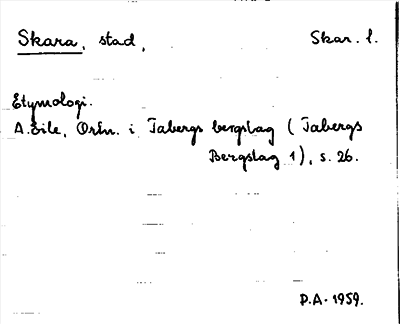 Skara, stad, Skar. l.
Etymologi.
A. Eile, Ortn. i Tabergs bergslag (Tabergs
Bergslag 1), s. 26.
P.A. 1959.